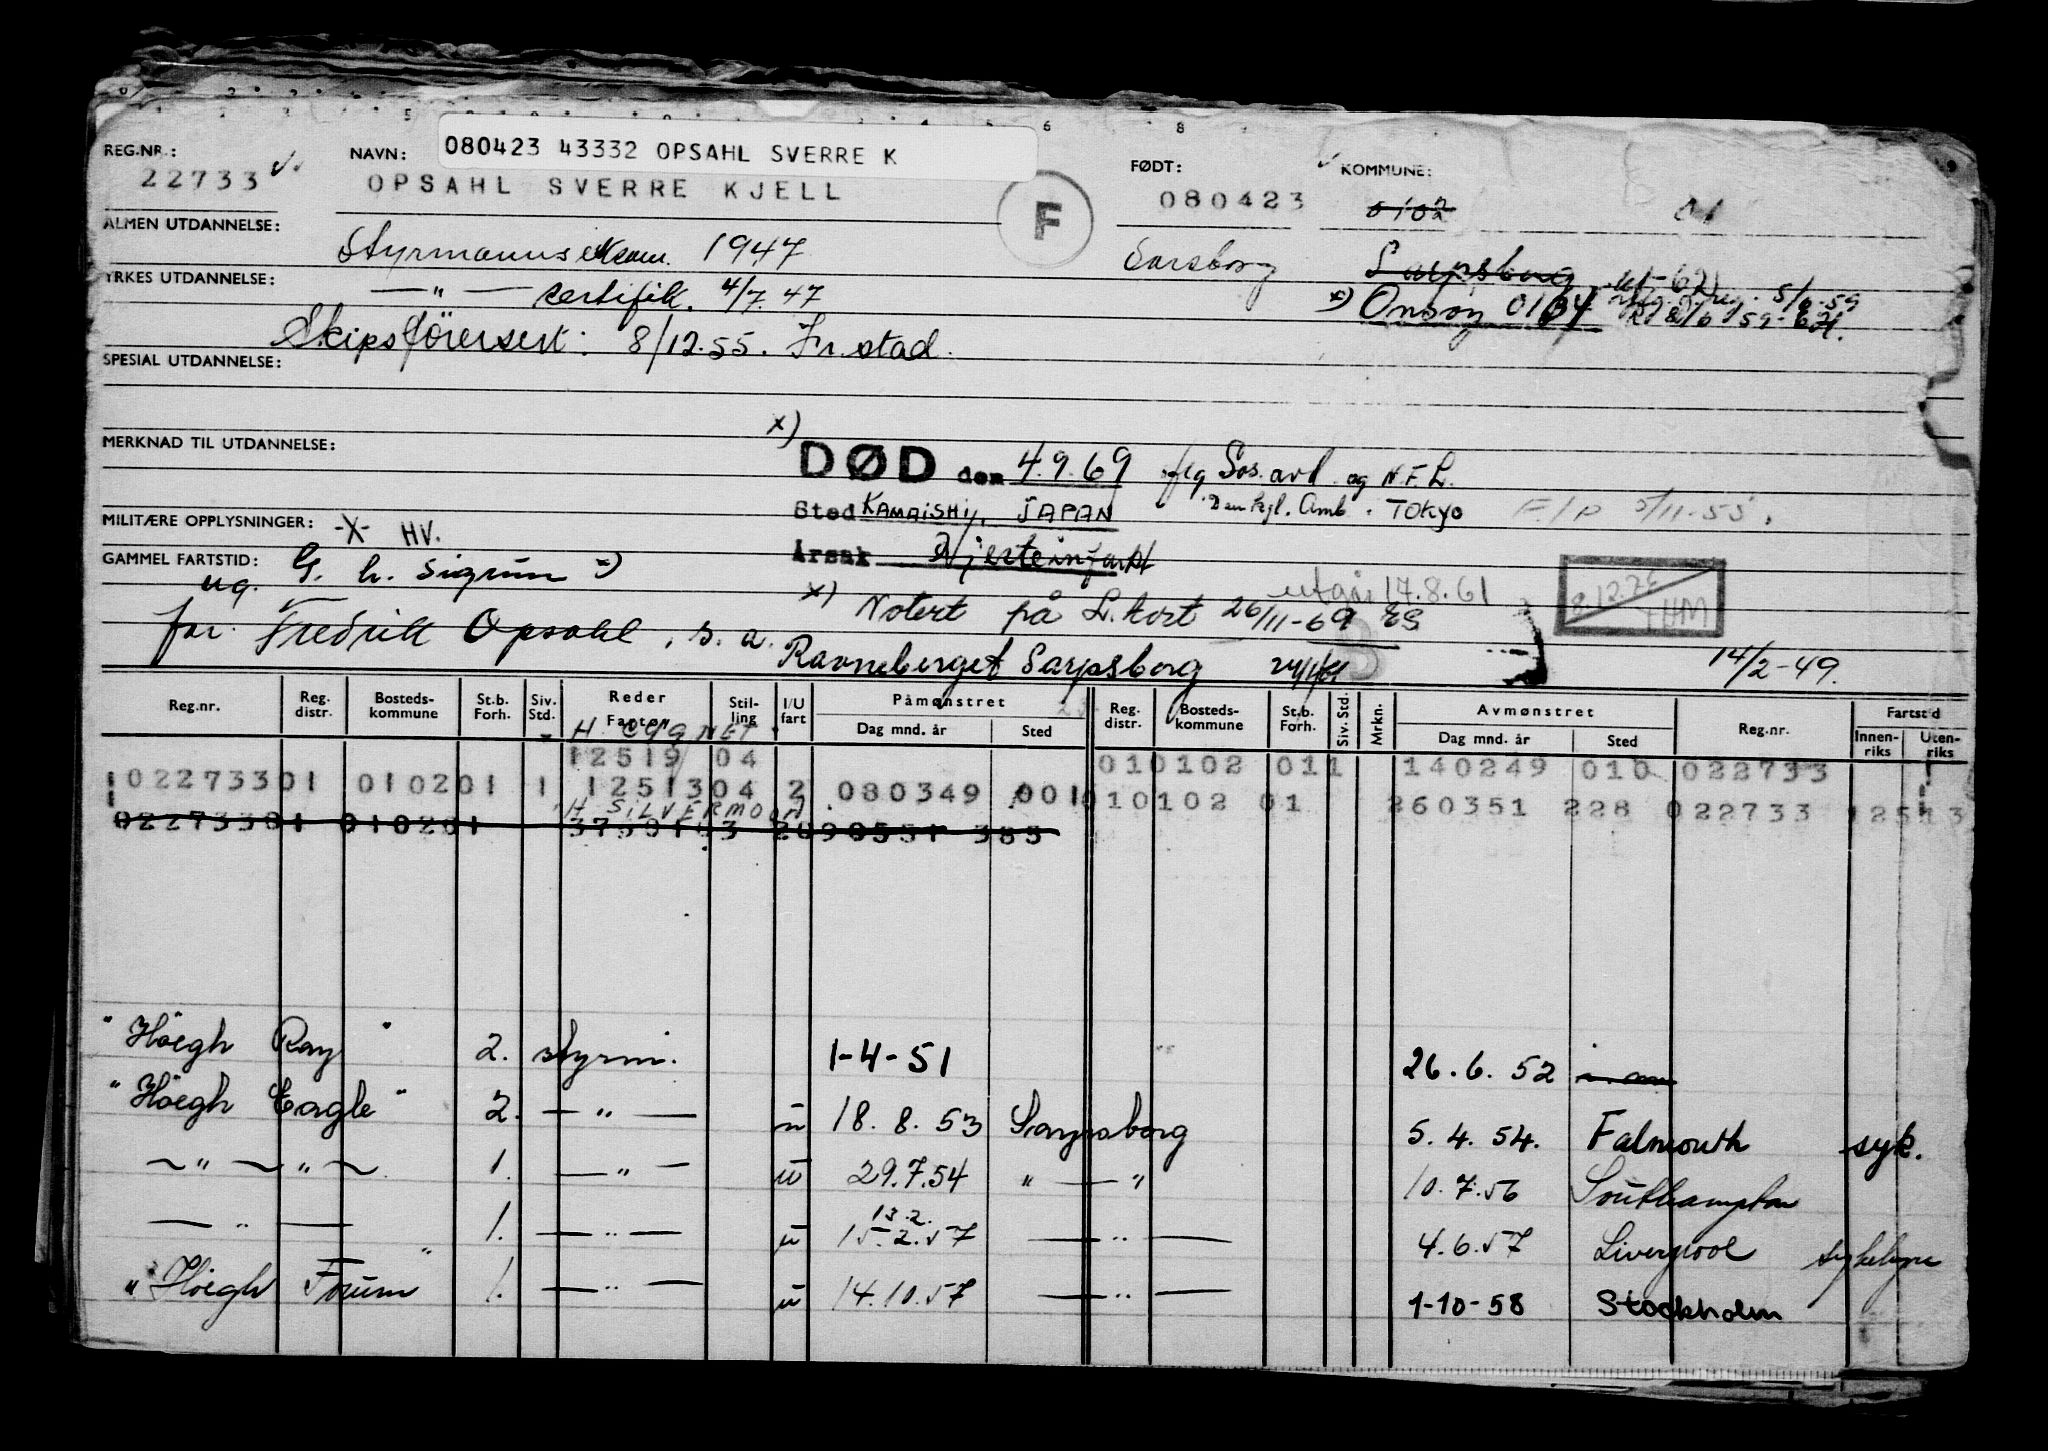 REG.NR.: 22733
NAVN: 080423 43332 OPSAHL SVERRE K
OPSAHL SVERRE KJELL
F
FØDT: 080423
KOMMUNE: 0102
01
ALMEN UTDANNELSE: Styrmannseksam. 1947
Sarpsborg
YRKES UTDANNELSE: — " — sertifik. 4/7.47
x) Onsøy 0134
Skipsförersert: 8/12.55. Fr.stad.
SPESIAL UTDANNELSE:
MERKNAD TIL UTDANNELSE:
x)
DØD den 4.9.69 iflg Sos.avd. og N.F.L.
Sted KAMAISHI, JAPAN Den Kgl. Amb. TOKYO
MILITÆRE OPPLYSNINGER: -X- HV.
Årsak Hjerteinfarkt
GAMMEL FARTSTID: G. h. Sigrun =)
ug.
x) Notert på L.kort 26/11-69 ES
utgår 17.8.61
far. Fredrik Opsahl, s. a.
Ravneberget Sarpsborg
14/2-49.
Reg.nr. Reg. distr. Bosteds- kommune St.b. Forh. Siv. Std. Reder Fartøy Stil- ling I/U fart Påmønstret Dag mnd. år Sted Reg. distr. Bosteds- kommune St.b. Forh. Siv. Std. Mrkn. Avmønstret Dag mnd. år Sted Reg.nr. Fartstid Innen- riks Uten- riks
H CYGNET
12519 04 010102 011 140249 010 022733
02273301 010201 1 1251304 2 080349 001 010102 01 260351 228 022733
H SILVERMOON
"Höegh Ray" 2. styrm. 1-4-51 26.6.52
"Höegh Eagle" 2. — " — u 18.8.53 Sarpsborg 5.4.54. Falmouth syk.
— " — " — 1. — " — u 29.7.54 " — " 10.7.56 Southampton
— " — 1. — " — u 13.2. 15.2.57 — " — 4.6.57 Liverpool
"Höegh Forum" 1. — " — u 14.10.57 — " — 1-10-58 Stockholm